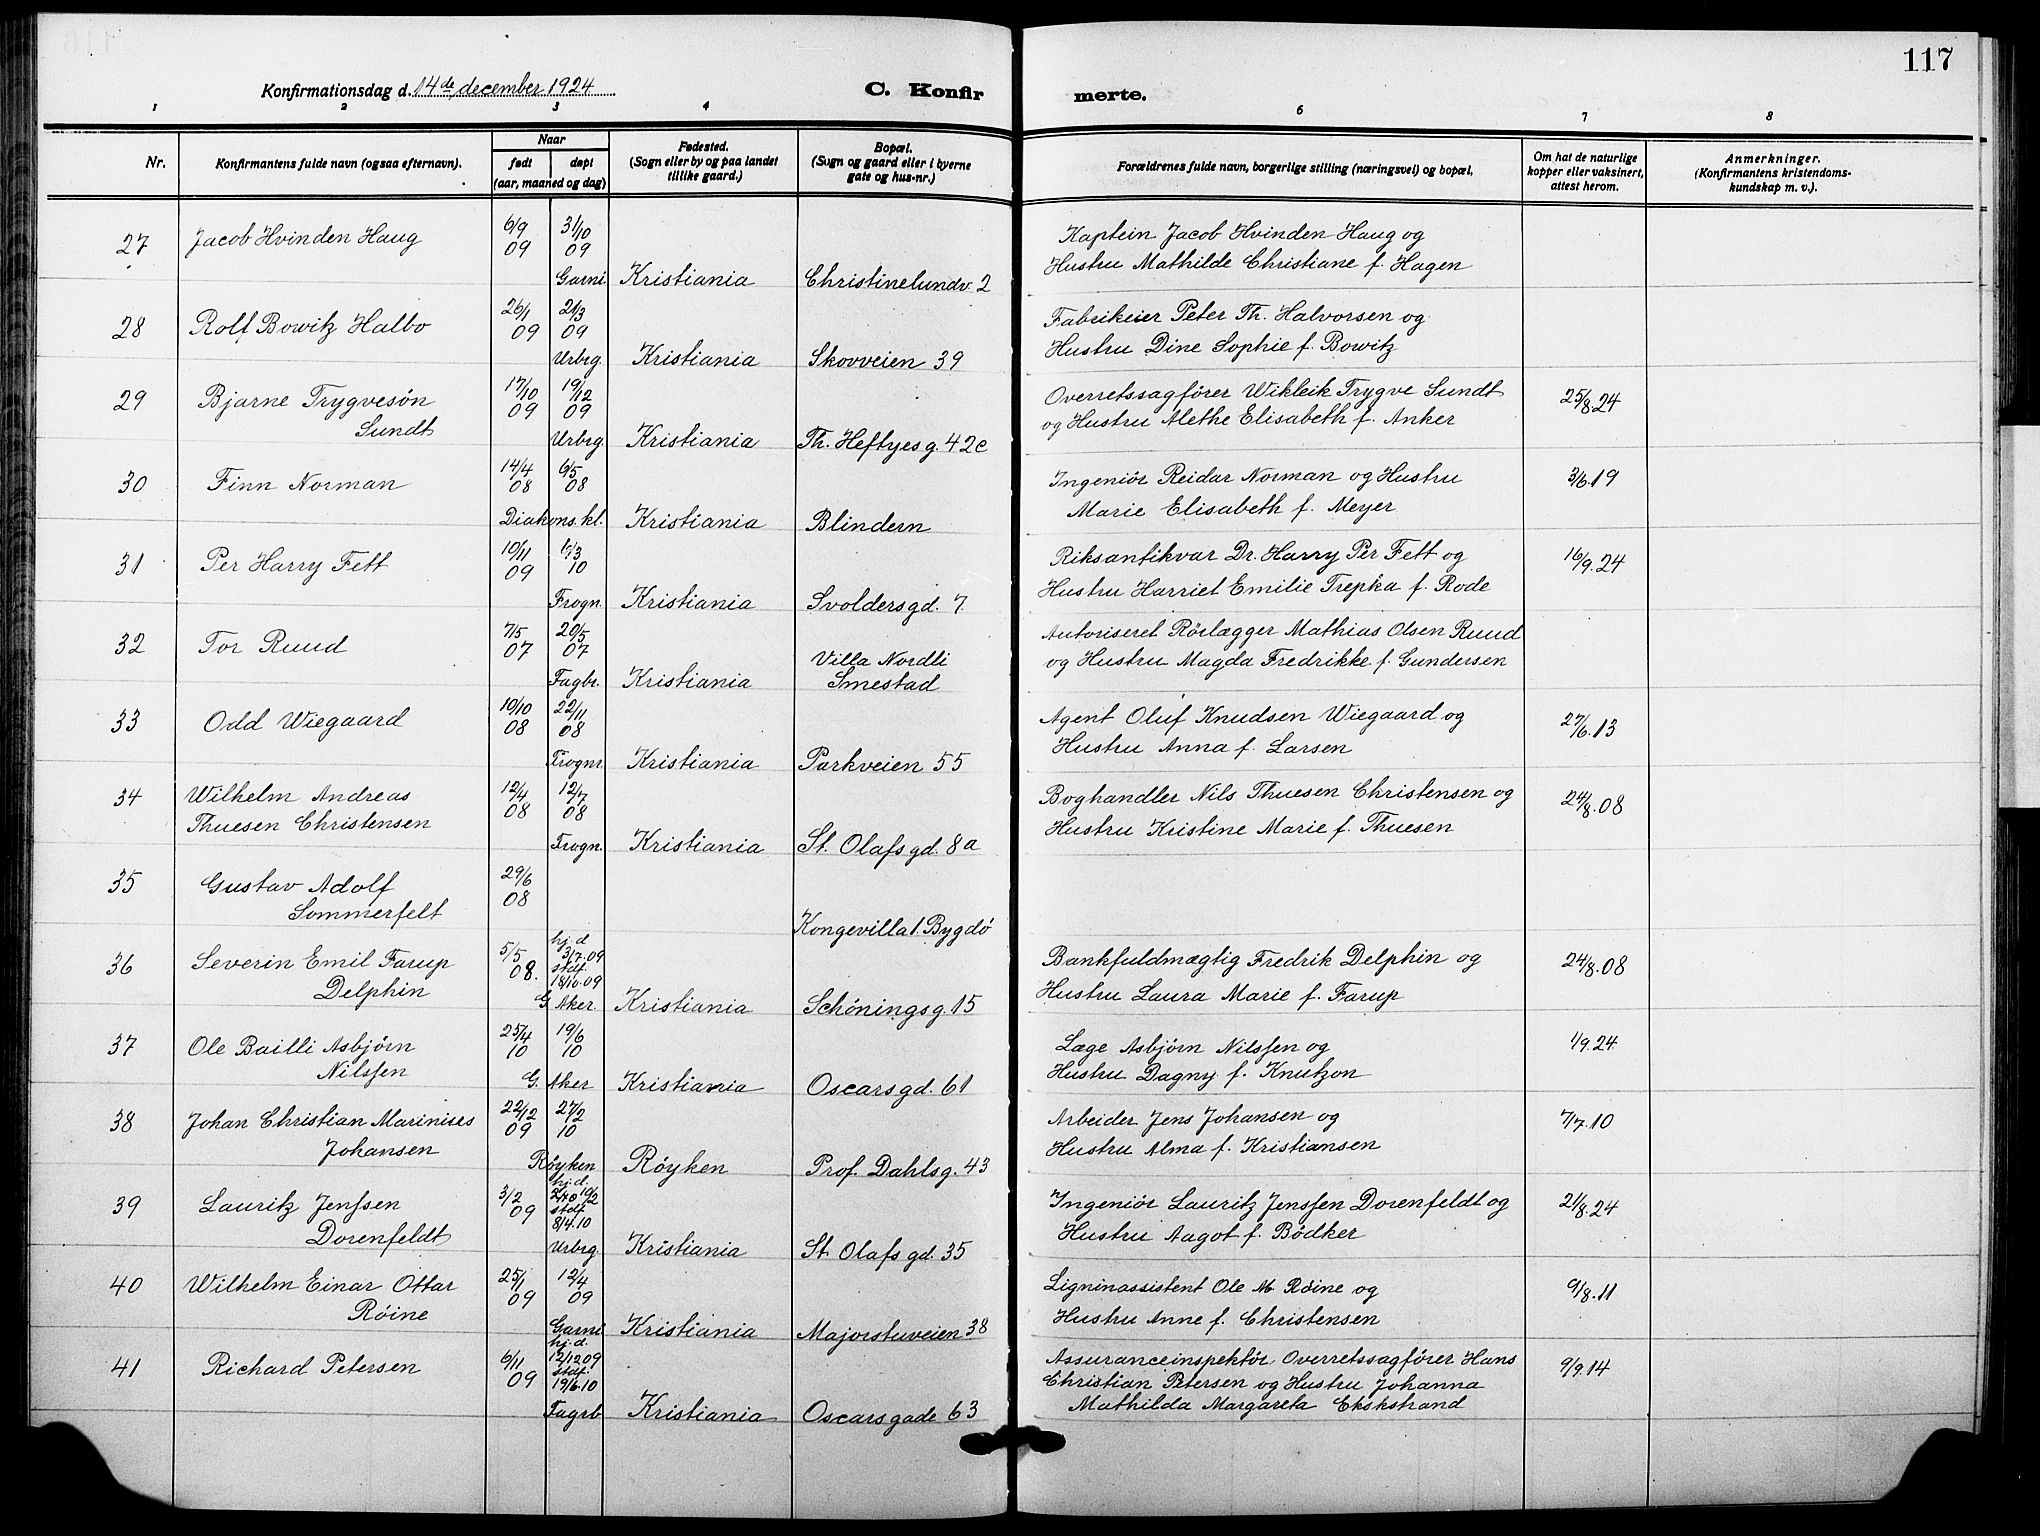 117
Konfirmationsdag d. 14de december 1924
C. Konfir merte.
1 2 3 4 6 7 8
Nr.
Konfirmantens fulde navn (ogsaa efternavn).
Naar
født døpt
(aar, maaned og dag)
Fødested.
(Sogn eller by og paa landet
tillike gaard.)
Bopæl.
(Sogn og gaard eller i byerne
gate og hus-nr.)
Forældrenes fulde navn, borgerlige stilling (næringsvei) og bopæl.
Om hat de naturlige
kopper eller vaksinert,
attest herom.
Anmerkninger.
(Konfirmantens kristendoms-
kundskap m. v.).
27 Jacob Hvinden Haug 6/9 09 31/10 09 Kaptein Jacob Hvinden Haug og
Garni. Kristiania Christinelundv. 2 Hustru Mathilde Christiane f. Hagen
28 Rolf Bowitz Halbo 26/1 09 21/3 09 Fabrikeier Peter Th. Halvorsen og
Urbrg. Kristiania Skovveien 39 Hustru Dine Sophie f. Bowitz
29 Bjarne Trygvesøn 17/10 09 19/12 09 Overretssagfører Wikleik Trygve Sundt 25/8.24
Sundt Urbrg. Kristiania Th. Heftyesg. 42c og Hustru Alethe Elisabeth f. Anker
30 Finn Norman 14/4 08 6/5 08 Ingeniør Reidar Norman og Hustru 3/6.19
Diakons.kl. Kristiania Blindern Marie Elisabeth f. Meyer
31 Per Harry Fett 10/11 09 6/3 10 Riksantikvar Dr. Harry Per Fett og 16/9.24
Frogn. Kristiania Svoldersgd. 7 Hustru Harriet Emilie Trepka f. Rode
32 Tor Ruud 7/5 07 20/5 07 Autoriseret Rörlægger Mathias Olsen Ruud
Fagbr. Kristiania Villa Nordli Smestad og Hustru Magda Fredrikke f. Gundersen
33 Odd Wiegaard 10/10 08 22/11 08 Agent Oluf Knudsen Wiegaard og 27/6.13
Frognr. Kristiania Parkveien 55 Hustru Anna f. Larsen
34 Wilhelm Andreas 12/4 08 12/7 08 Boghandler Nils Thuesen Christensen og 24/8.08
Thuesen Christensen Frogn. Kristiania St. Olafsgd. 8a Hustru Kristine Marie f. Thuesen
35 Gustav Adolf 29/6 08
Sommerfelt Kongevilla 1. Bygdö
36 Severin Emil Farup 5/5 08. hj.d 3/7.09 stdf. 18/10.09 Bankfuldmægtig Fredrik Delphin og 24/8.08
Delphin G Aker. Kristiania Schöningsg. 15 Hustru Laura Marie f. Farup
37 Ole Bailli Asbjørn 25/4 10 19/6 10 Læge Asbjørn Nilssen og 1/9.24
Nilssen G. Aker Kristiania Oscarsgd. 61 Hustru Dagny f. Knutzon
38 Johan Christian Marinises 22/12 09 27/2 10 Arbeider Jens Johansen og 7/7.10
Johansen Röyken Röyken Prof. Dahlsg. 43 Hustru Alma f. Kristiansen
39 Lauritz Jenssen 3/2 09 hj.d. stdf. 8/4.10 Ingeniør Lauritz Jenssen Dorenfeldt og 21/8.24
Dorenfeldt Urbrg. Kristiania St. Olafsgd. 35 Hustru Aagot f. Bödker
40 Wilhelm Einar Ottar 25/1 09 12/4 09 Ligninassistent Ole M. Röine og 9/8.11
Röine Garni Kristiania Majorstuveien 38 Hustru Anne f. Christensen
41 Richard Petersen 6/11 09 hj.d. 12/12 09 stdf. 19/6.10 Assuranceinspektör, Overretssagförer Hans 9/9.14
Christian Petersen og Hustru Johanna
Fagrb Kristiania Oscarsgade 63 Mathilda Margareta Ekskstrand